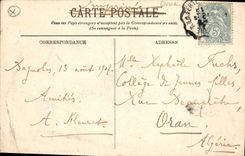 CARTE POSTALE
Tous les Pays étrangers n'acceptent pas la Correspondance au Recto
(Se renseigner à la Poste)
CORRESPONDANCE
ADRESSE
Bagnoles, 13 août 1907
Amitiés
A. Meuret
Mlle Raphaële Fuchs
Collège de Jeunes filles
Rue
Oran
Algérie
5